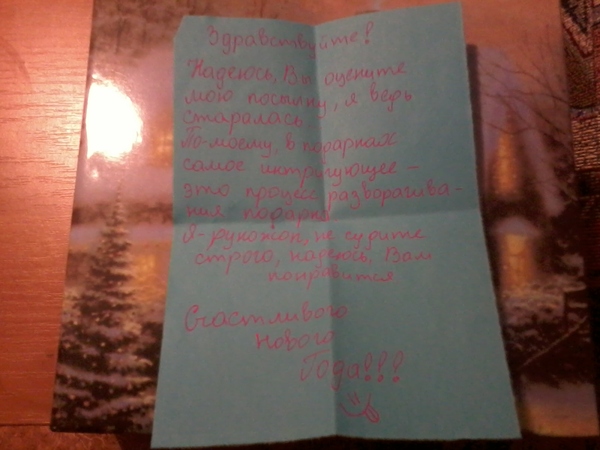 Здравствуйте!
Надеюсь, Вы оцените
мою посылку, я ведь
старалась
По-моему, в подарках
самое интригующее —
это процесс разворачива-
ния подарка
Я - рукожоп, не судите
строго, надеюсь, Вам
понравится
Счастливого
Нового
Года!!!